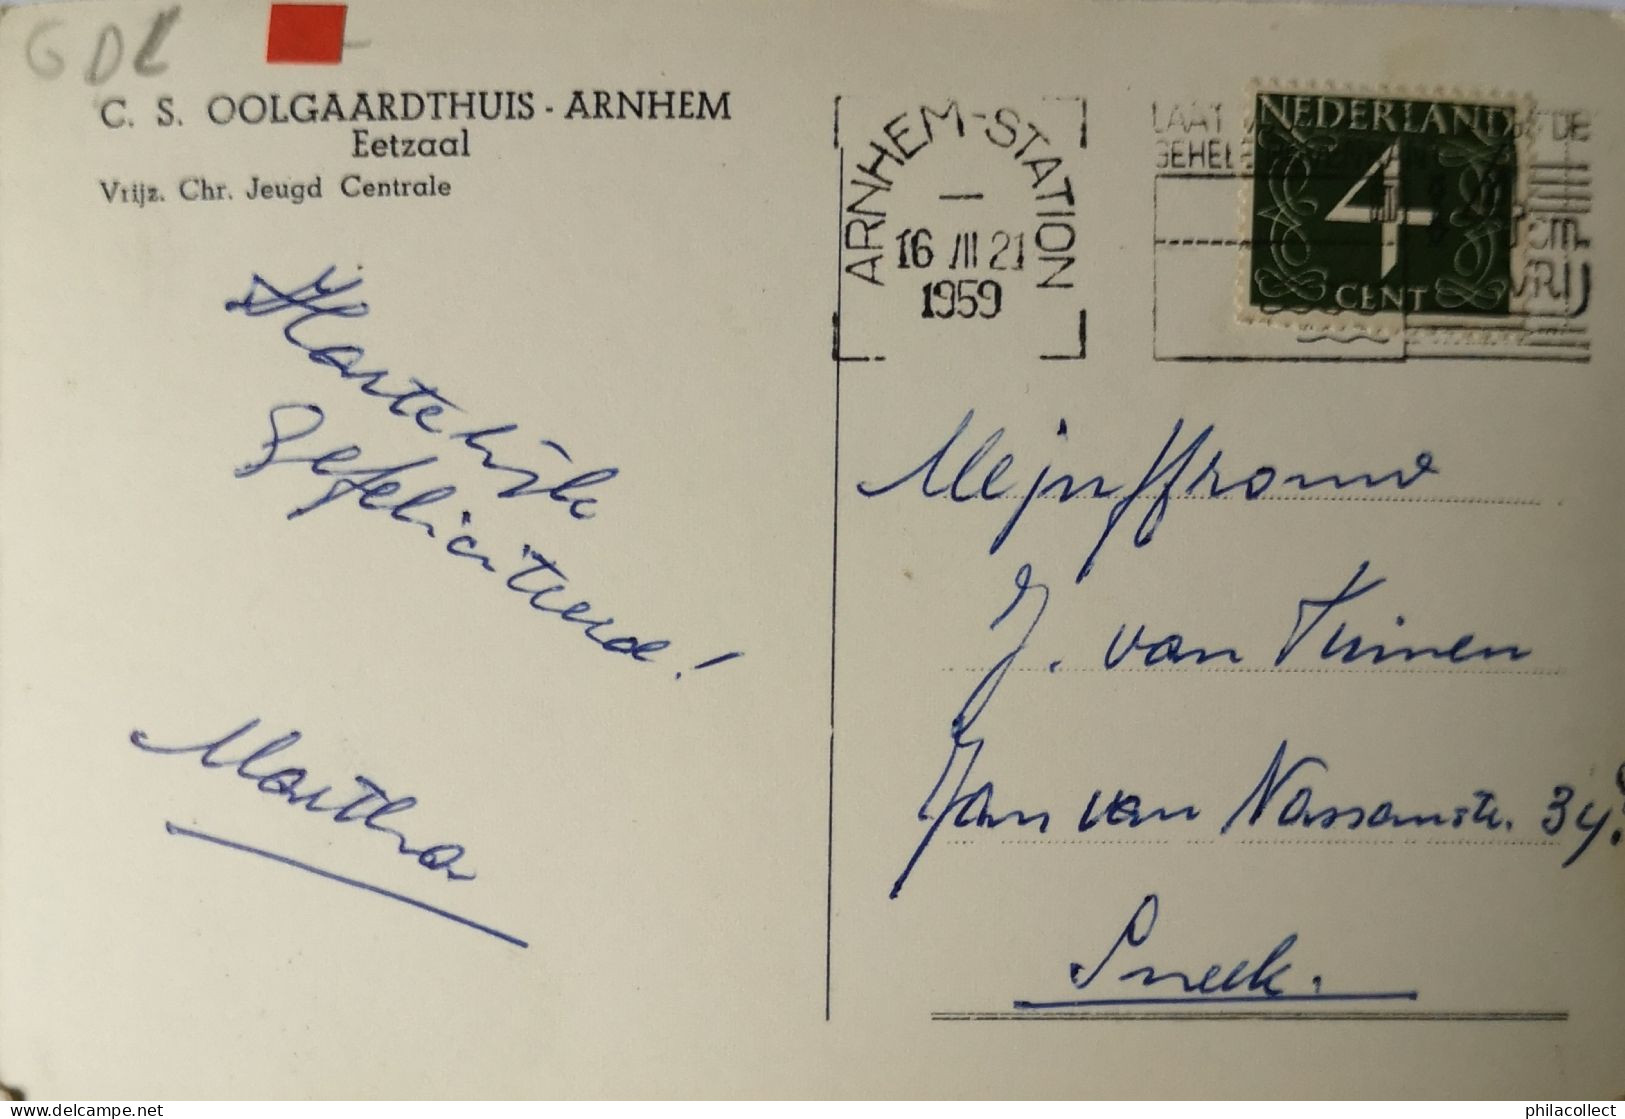 GDL
C. S. OOLGAARDTHUIS - ARNHEM
Eetzaal
Vrijz. Chr. Jeugd Centrale
ARNHEM-STATION
16 III 21
1959
NEDERLAND
4
CENT
VRIJ
Hartelijk
Gefeliciteerd!
Martha
Mejuffrouw
J. van Tuinen
Jan van Nassaustr. 34
Sneek.
delcampe.net
philacollect